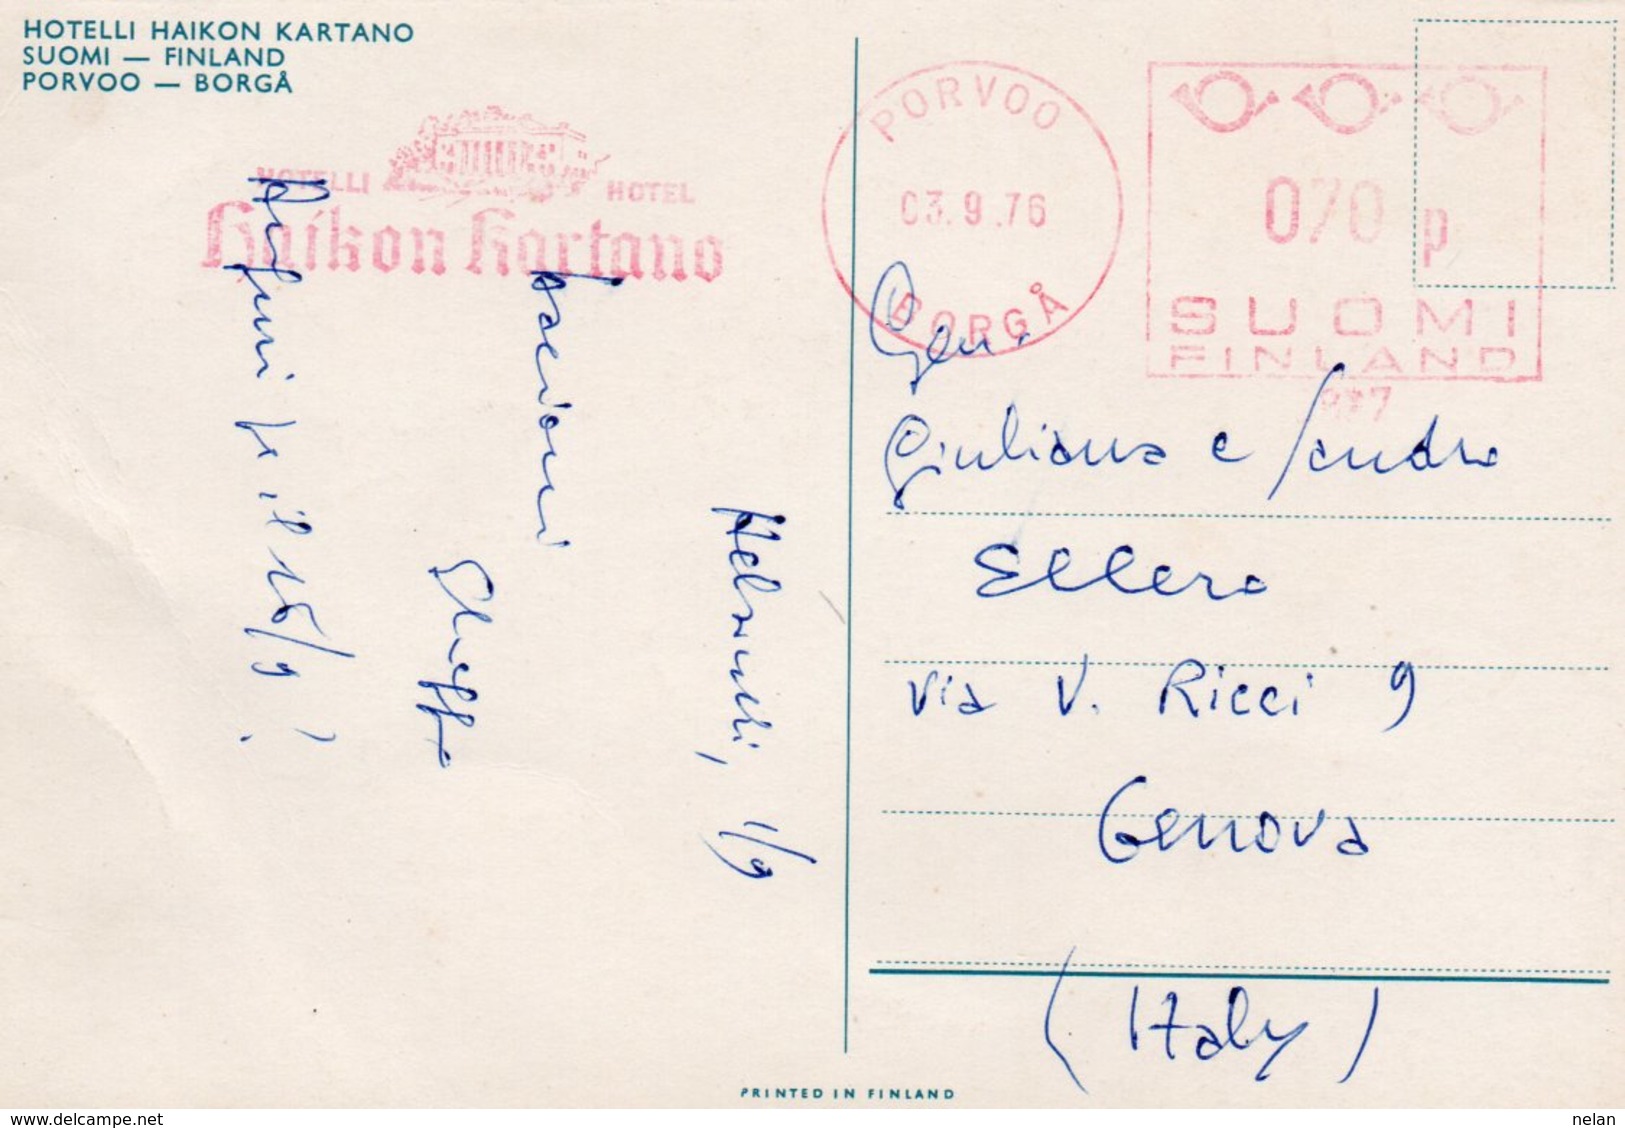 HOTELLI HAIKON KARTANO
SUOMI — FINLAND
PORVOO — BORGÅ
HOTELLI HOTEL
Haikon Kartano
PORVOO
03.9.76
BORGÅ
070 p
SUOMI
FINLAND
Helsinki, 1/9
per il 16/9!
Gen.
Giuliana e Sandro
Ellero
via V. Ricci 9
Genova
(Italy)
PRINTED IN FINLAND
www.delcampe.net
nelan